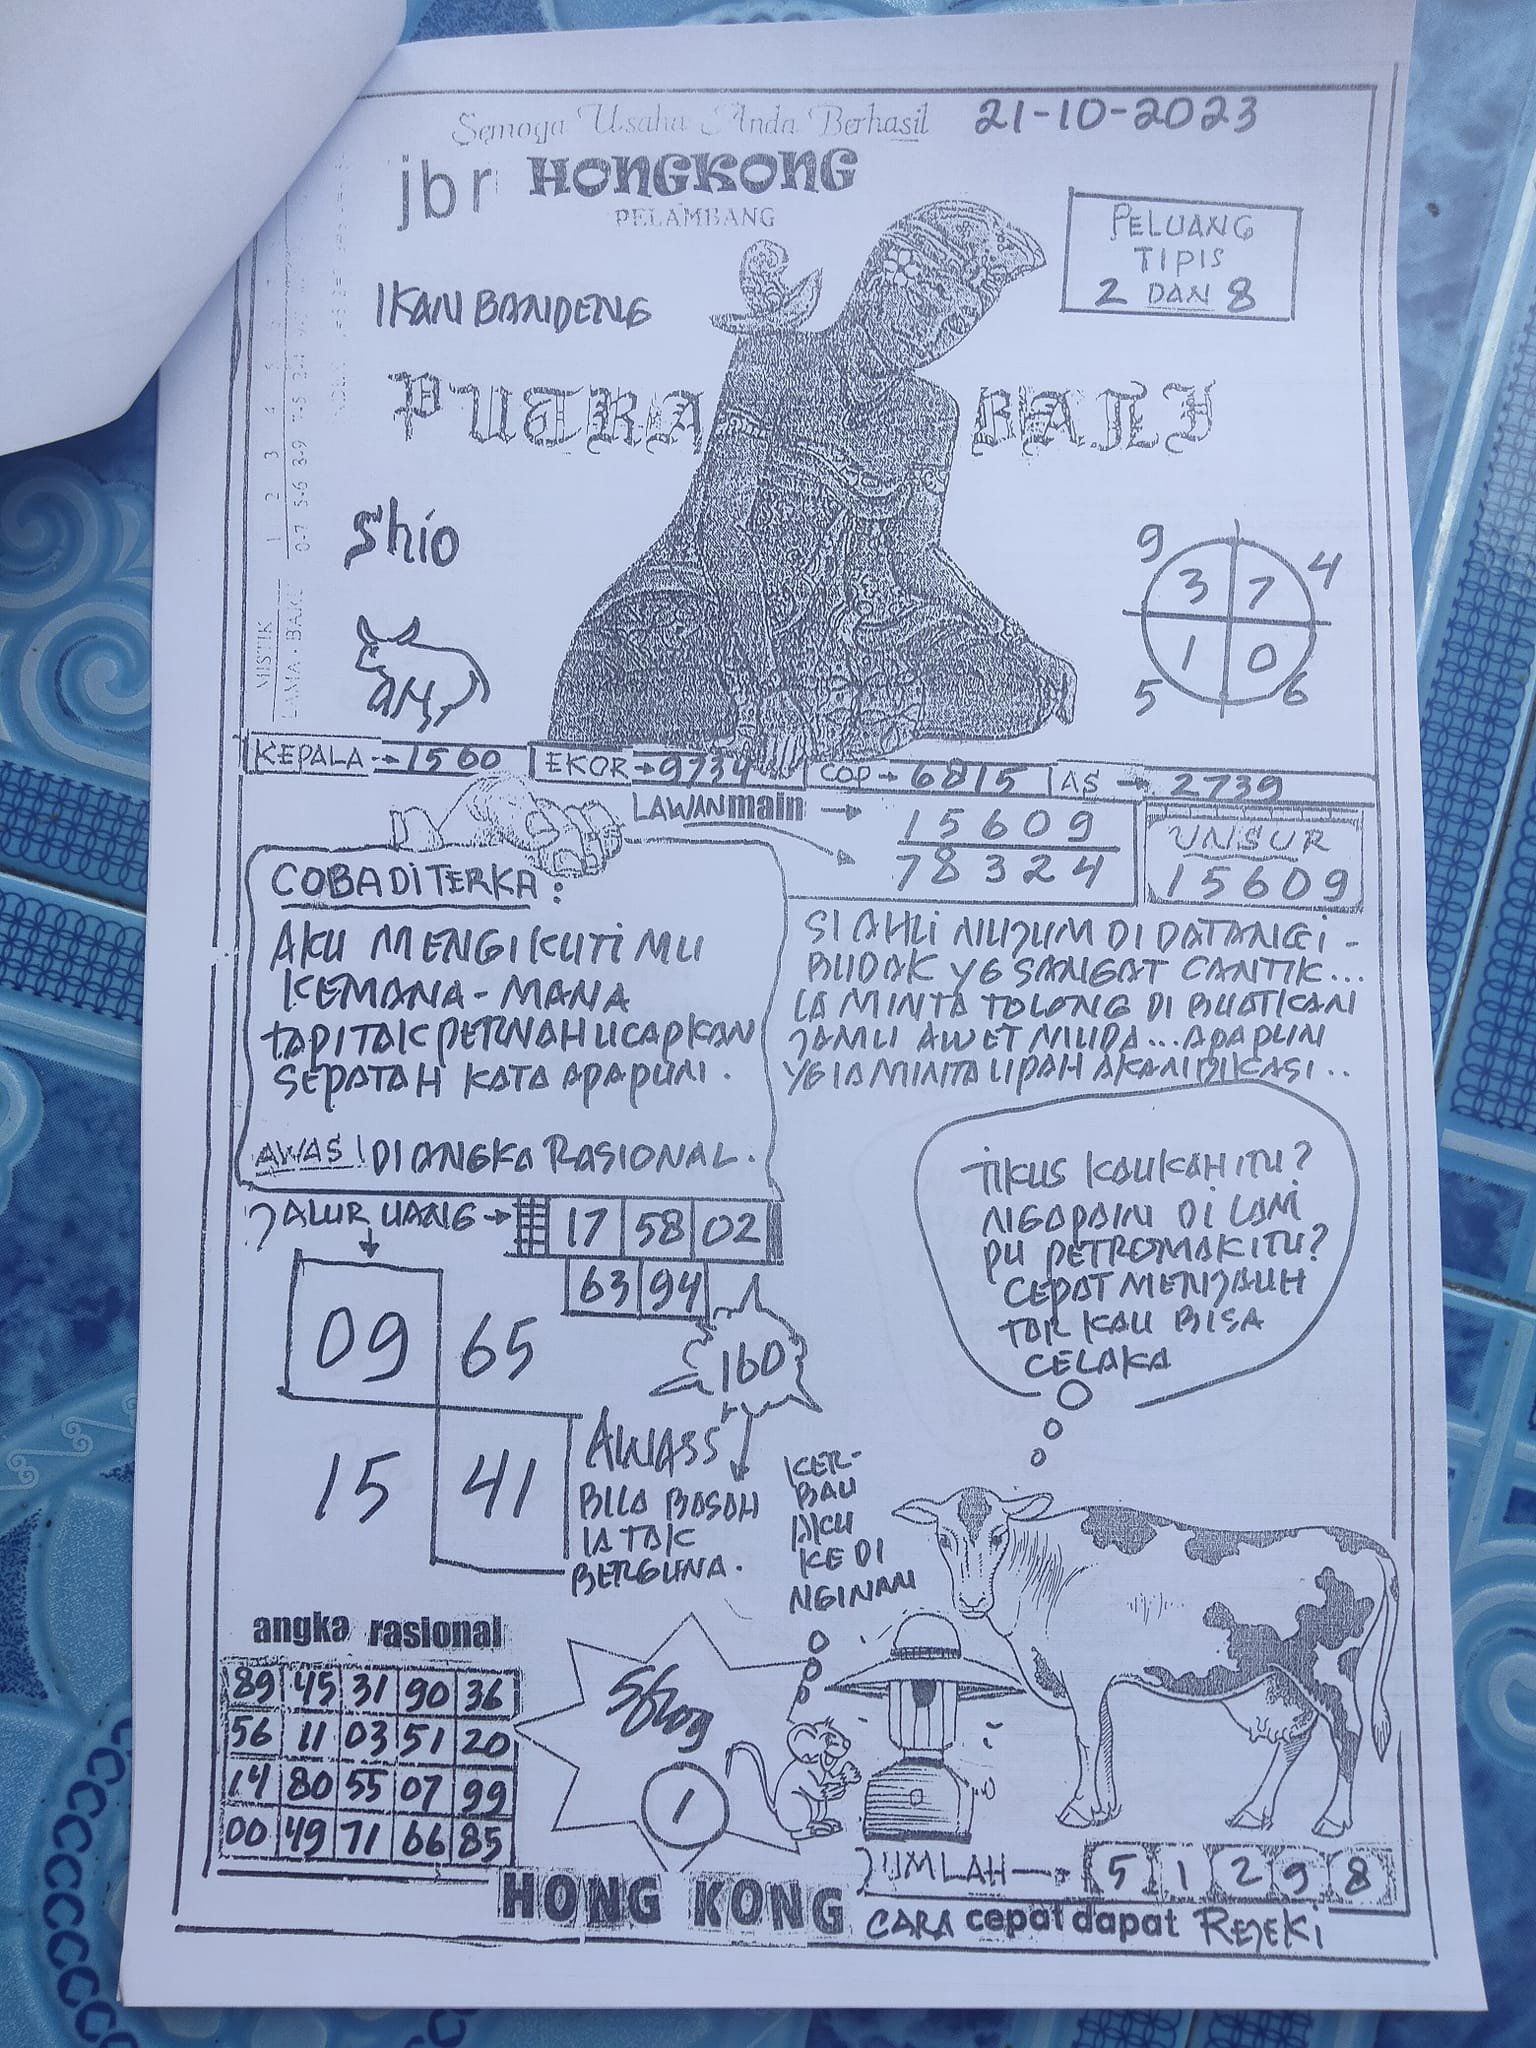 Semoga Usaha Anda Berhasil
21-10-2023
jbr HONGKONG
PELAMBANG
PELUANG
TIPIS
2 DAN 8
IKAN BANDENG
PUTRA BALI
Shio
MISTIK
LAMA - BARU
1 2 3 4
0-7 5-6 8-9
9 4
3 7
1 0
5 6
KEPALA 1560
EKOR 9734
COP 6815
AS 2739
LAWAN main
15609
78324
UNSUR
15609
COBA DITERKA :
AKU MENGIKUTIMU
KEMANA-MANA
TAPI TAK PERNAH UCAPKAN
SEPATAH KATA APAPUN.
AWAS! DI ANGKA RASIONAL.
SI AHLI NUJUM DI DATANGI -
BUDAK YG SANGAT CANTIK...
IA MINTA TOLONG DI BUATKAN
JAMU AWET MUDA... APAPUN
YG IA MINTA UPAH AKAN DIKASI..
JALUR UANG
17 58 02
63 94
09 65
15 41
160
AWASS
BILA BASAH
IA TAK
BERGUNA.
TIKUS KAUKAH ITU?
NGAPAIN DI LAM
PU PETROMAK ITU?
CEPAT MENJAUH
TAR KAU BISA
CELAKA
KER-
BAU
AKU
KEDI
NGINAN
angka rasional
89 45 31 90 36
56 11 03 51 20
14 80 55 07 99
00 49 71 66 85
1
JUMLAH 5 1 2 9 8
HONG KONG
CARA cepat dapat REJEKI